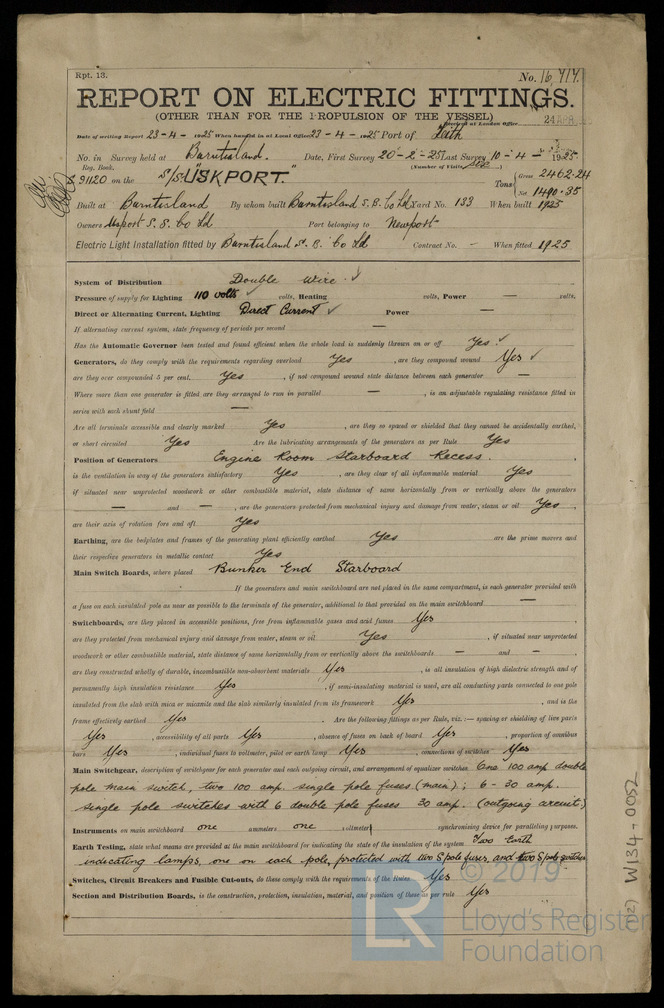 Rpt. 13.
No. 16,717.
REPORT ON ELECTRIC FITTINGS.
(OTHER THAN FOR THE PROPULSION OF THE VESSEL)
Received at London Office 24 APR
Date of writing Report 23-4-1925 When handed in at Local Office 23-4-1925 Port of Leith
No. in Survey held at Burntisland. Date, First Survey 20-2-25 Last Survey 10-4-1925.
Reg. Book. (Number of Visits
91120 on the S/S "USKPORT." Tons Gross 2462.24
Net 1490.35
Built at Burntisland By whom built Burntisland S.B. Co Ld Yard No. 133 When built 1925
Owners Uskport S.S. Co Ld Port belonging to Newport
Electric Light Installation fitted by Burntisland S.B. Co Ld Contract No. - When fitted 1925
System of Distribution Double Wire. ✓
Pressure of supply for Lighting 110 volts ✓ volts, Heating volts, Power — volts.
Direct or Alternating Current, Lighting Direct Current ✓ Power —
If alternating current system, state frequency of periods per second —
Has the Automatic Governor been tested and found efficient when the whole load is suddenly thrown on or off Yes. ✓
Generators, do they comply with the requirements regarding overload Yes, are they compound wound Yes ✓
are they over compounded 5 per cent. Yes, if not compound wound state distance between each generator —
Where more than one generator is fitted are they arranged to run in parallel —, is an adjustable regulating resistance fitted in
series with each shunt field —
Are all terminals accessible and clearly marked Yes, are they so spaced or shielded that they cannot be accidentally earthed,
or short circuited Yes Are the lubricating arrangements of the generators as per Rule Yes
Position of Generators Engine Room Starboard Recess.
is the ventilation in way of the generators satisfactory Yes, are they clear of all inflammable material Yes
if situated near unprotected woodwork or other combustible material, state distance of same horizontally from or vertically above the generators
— and —, are the generators protected from mechanical injury and damage from water, steam or oil Yes,
are their axis of rotation fore and aft Yes
Earthing, are the bedplates and frames of the generating plant efficiently earthed Yes are the prime movers and
their respective generators in metallic contact Yes
Main Switch Boards, where placed Bunker End Starboard
If the generators and main switchboard are not placed in the same compartment, is each generator provided with
a fuse on each insulated pole as near as possible to the terminals of the generator, additional to that provided on the main switchboard —
Switchboards, are they placed in accessible positions, free from inflammable gases and acid fumes Yes,
are they protected from mechanical injury and damage from water, steam or oil Yes, if situated near unprotected
woodwork or other combustible material, state distance of same horizontally from or vertically above the switchboards — and —,
are they constructed wholly of durable, incombustible non-absorbent materials Yes, is all insulation of high dielectric strength and of
permanently high insulation resistance Yes, if semi-insulating material is used, are all conducting parts connected to one pole
insulated from the slab with mica or micanite and the slab similarly insulated from its framework Yes, and is the
frame effectively earthed Yes. Are the following fittings as per Rule, viz.:— spacing or shielding of live parts
Yes, accessibility of all parts Yes, absence of fuses on back of board Yes, proportion of omnibus
bars Yes, individual fuses to voltmeter, pilot or earth lamp Yes, connections of switches Yes
Main Switchgear, description of switchgear for each generator and each outgoing circuit, and arrangement of equalizer switches One 100 amp double
pole main switch, two 100 amp. single pole fuses (main); 6 - 30 amp.
single pole switches with 6 double pole fuses 30 amp. (outgoing circuit)
Instruments on main switchboard one ammeters one voltmeter synchronising device for paralleling purposes.
Earth Testing, state what means are provided at the main switchboard for indicating the state of the insulation of the system Two Earth
indicating lamps, one on each pole, protected with two S pole fuses, and two S pole switches
Switches, Circuit Breakers and Fusible Cut-outs, do these comply with the requirements of the Rules Yes
Section and Distribution Boards, is the construction, protection, insulation, material, and position of these as per rule Yes
W134-0052
© 2019
LR
Lloyd's Register
Foundation